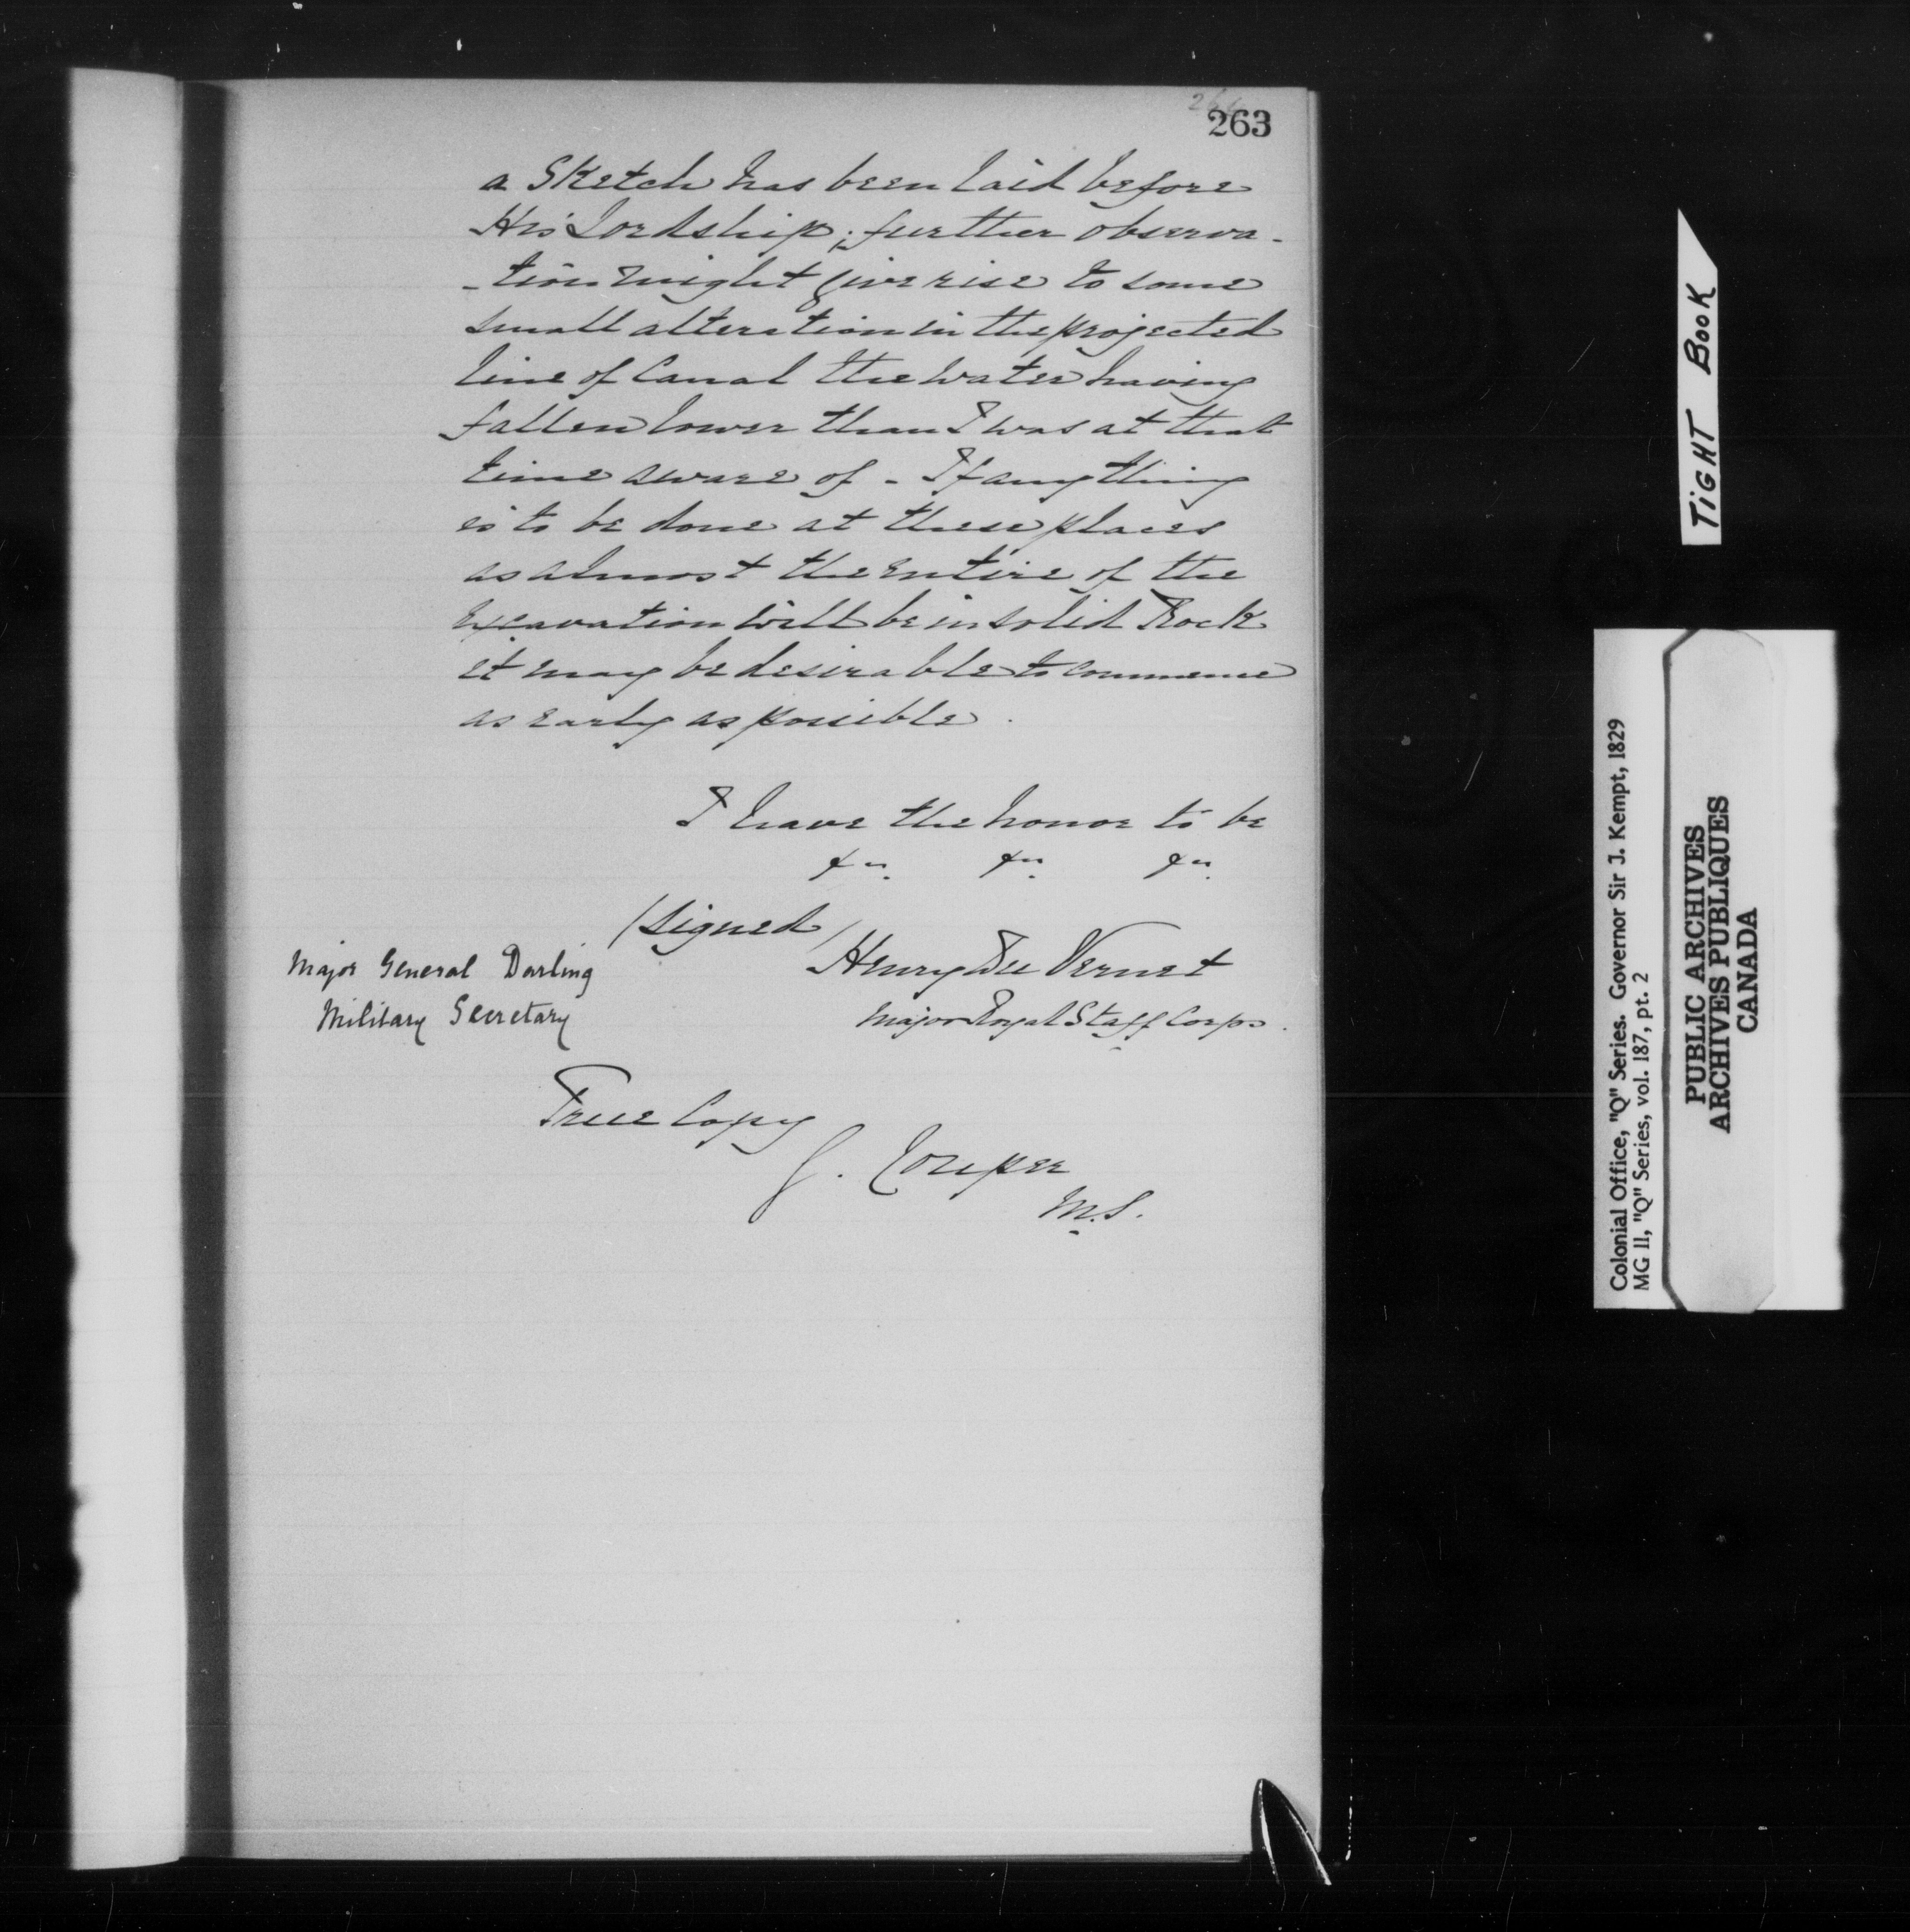 263
a Sketch has been laid before
His Lordship; further observa-
-tion might give rise to some
small alteration in the projected
line of Canal the water having
fallen lower than I was at that
time aware of - If anything
is to be done at these places
as almost the entire of the
Excavation will be in solid Rock
it may be desirable to commence
as early as possible.
I have the honor to be
&c. &c. &c.
(Signed)
Henry Du Vernet
Major Royal Staff Corps.
Major General Darling
Military Secretary
True Copy
J. Couper
M.S.
TIGHT BOOK
Colonial Office, "Q" Series. Governor Sir J. Kempt, 1829
MG 11, "Q" Series, vol. 187, pt. 2
PUBLIC ARCHIVES
ARCHIVES PUBLIQUES
CANADA